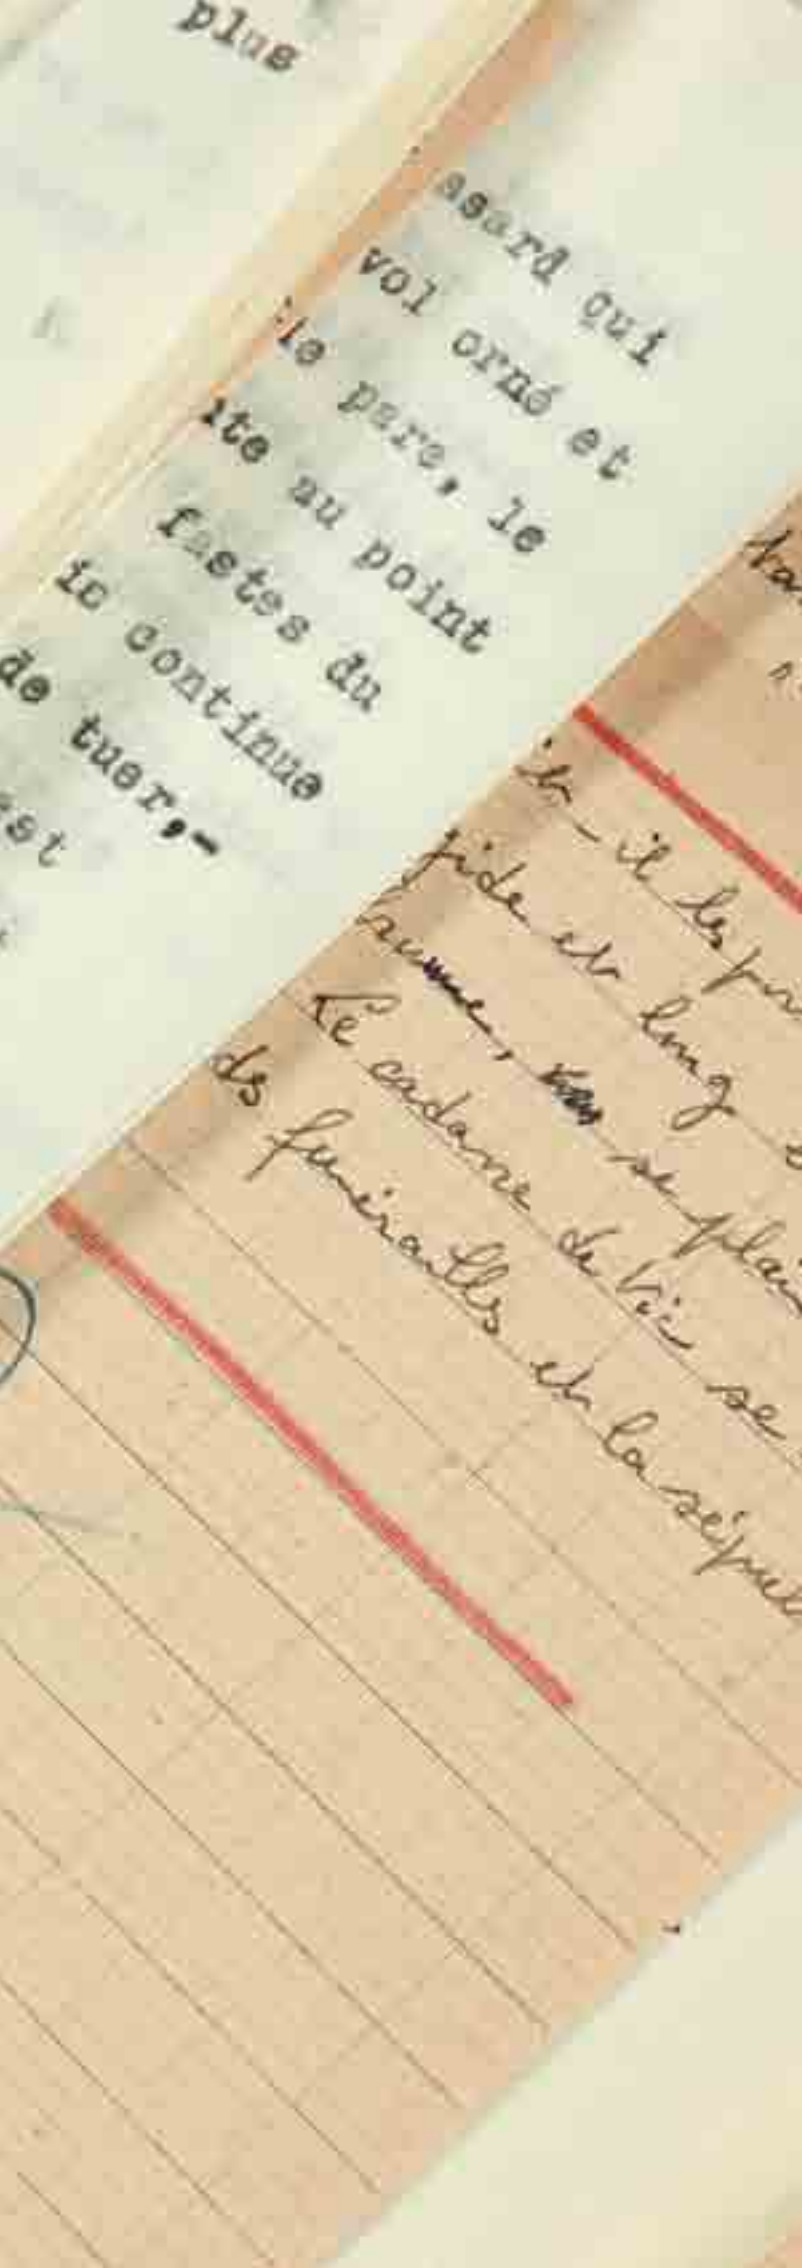 plus
asard qui
vol orné et
le pare, le
ite au point
fastes du
ic continue
de tuer,-
est
il les
gide et long
se plain
Le cadavre de Vic se
ds funérailles et la sépul